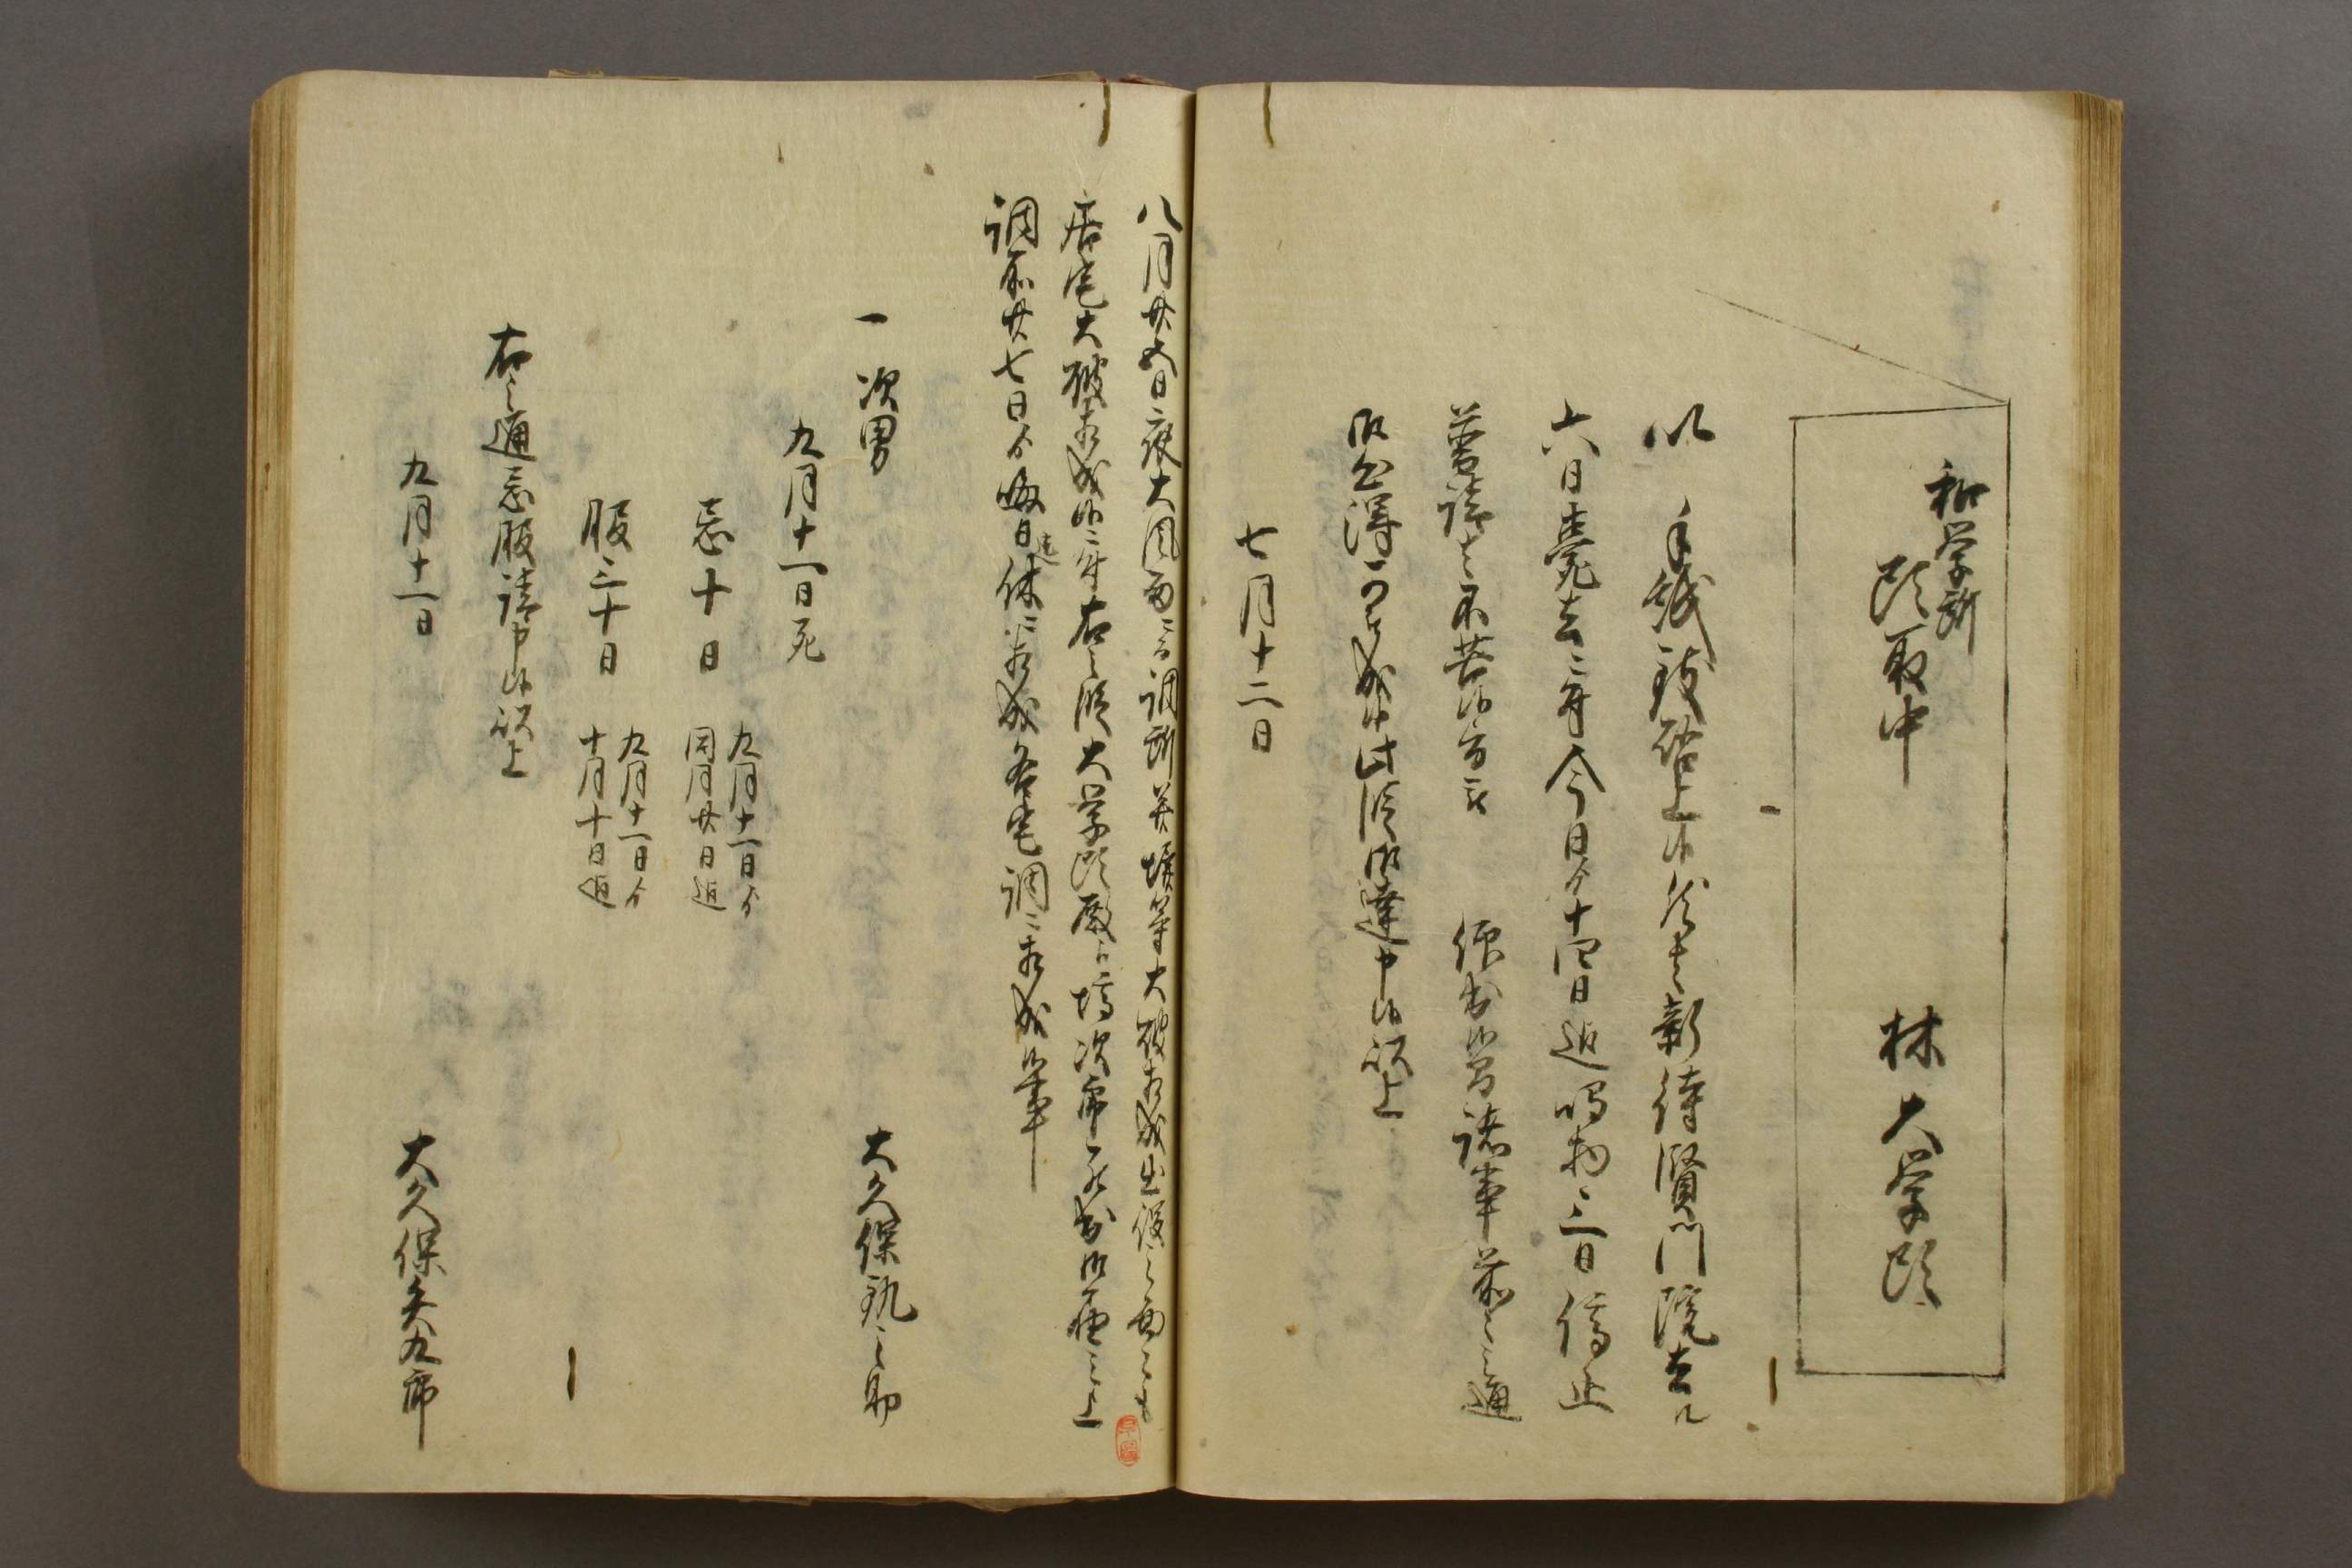 和学所
頭取中
林大学頭
以手紙致啓上候然者新待賢門院去ル
六日薨去ニ付今日ゟ十四日迄鳴物三日停止
普請者不苦候旨被仰出候間諸事前々之通
御心得可被成候此段御達申候以上
七月十二日
八月廿五日夜大風雨ニ而調所并塀等大破相成出役之面々も
居宅大破相成候ニ付右之段大学頭殿江塙次郎ゟ被申上
調所廿七日ゟ晦日迄休ニ相成各宅調ニ相成候事
一次男
大久保釻之助
九月十一日死
忌十日
九月十一日ゟ
同月廿日迄
服三十日
九月十一日ゟ
十月十日迄
右之通忌服請申候以上
九月十一日
大久保矢九郎